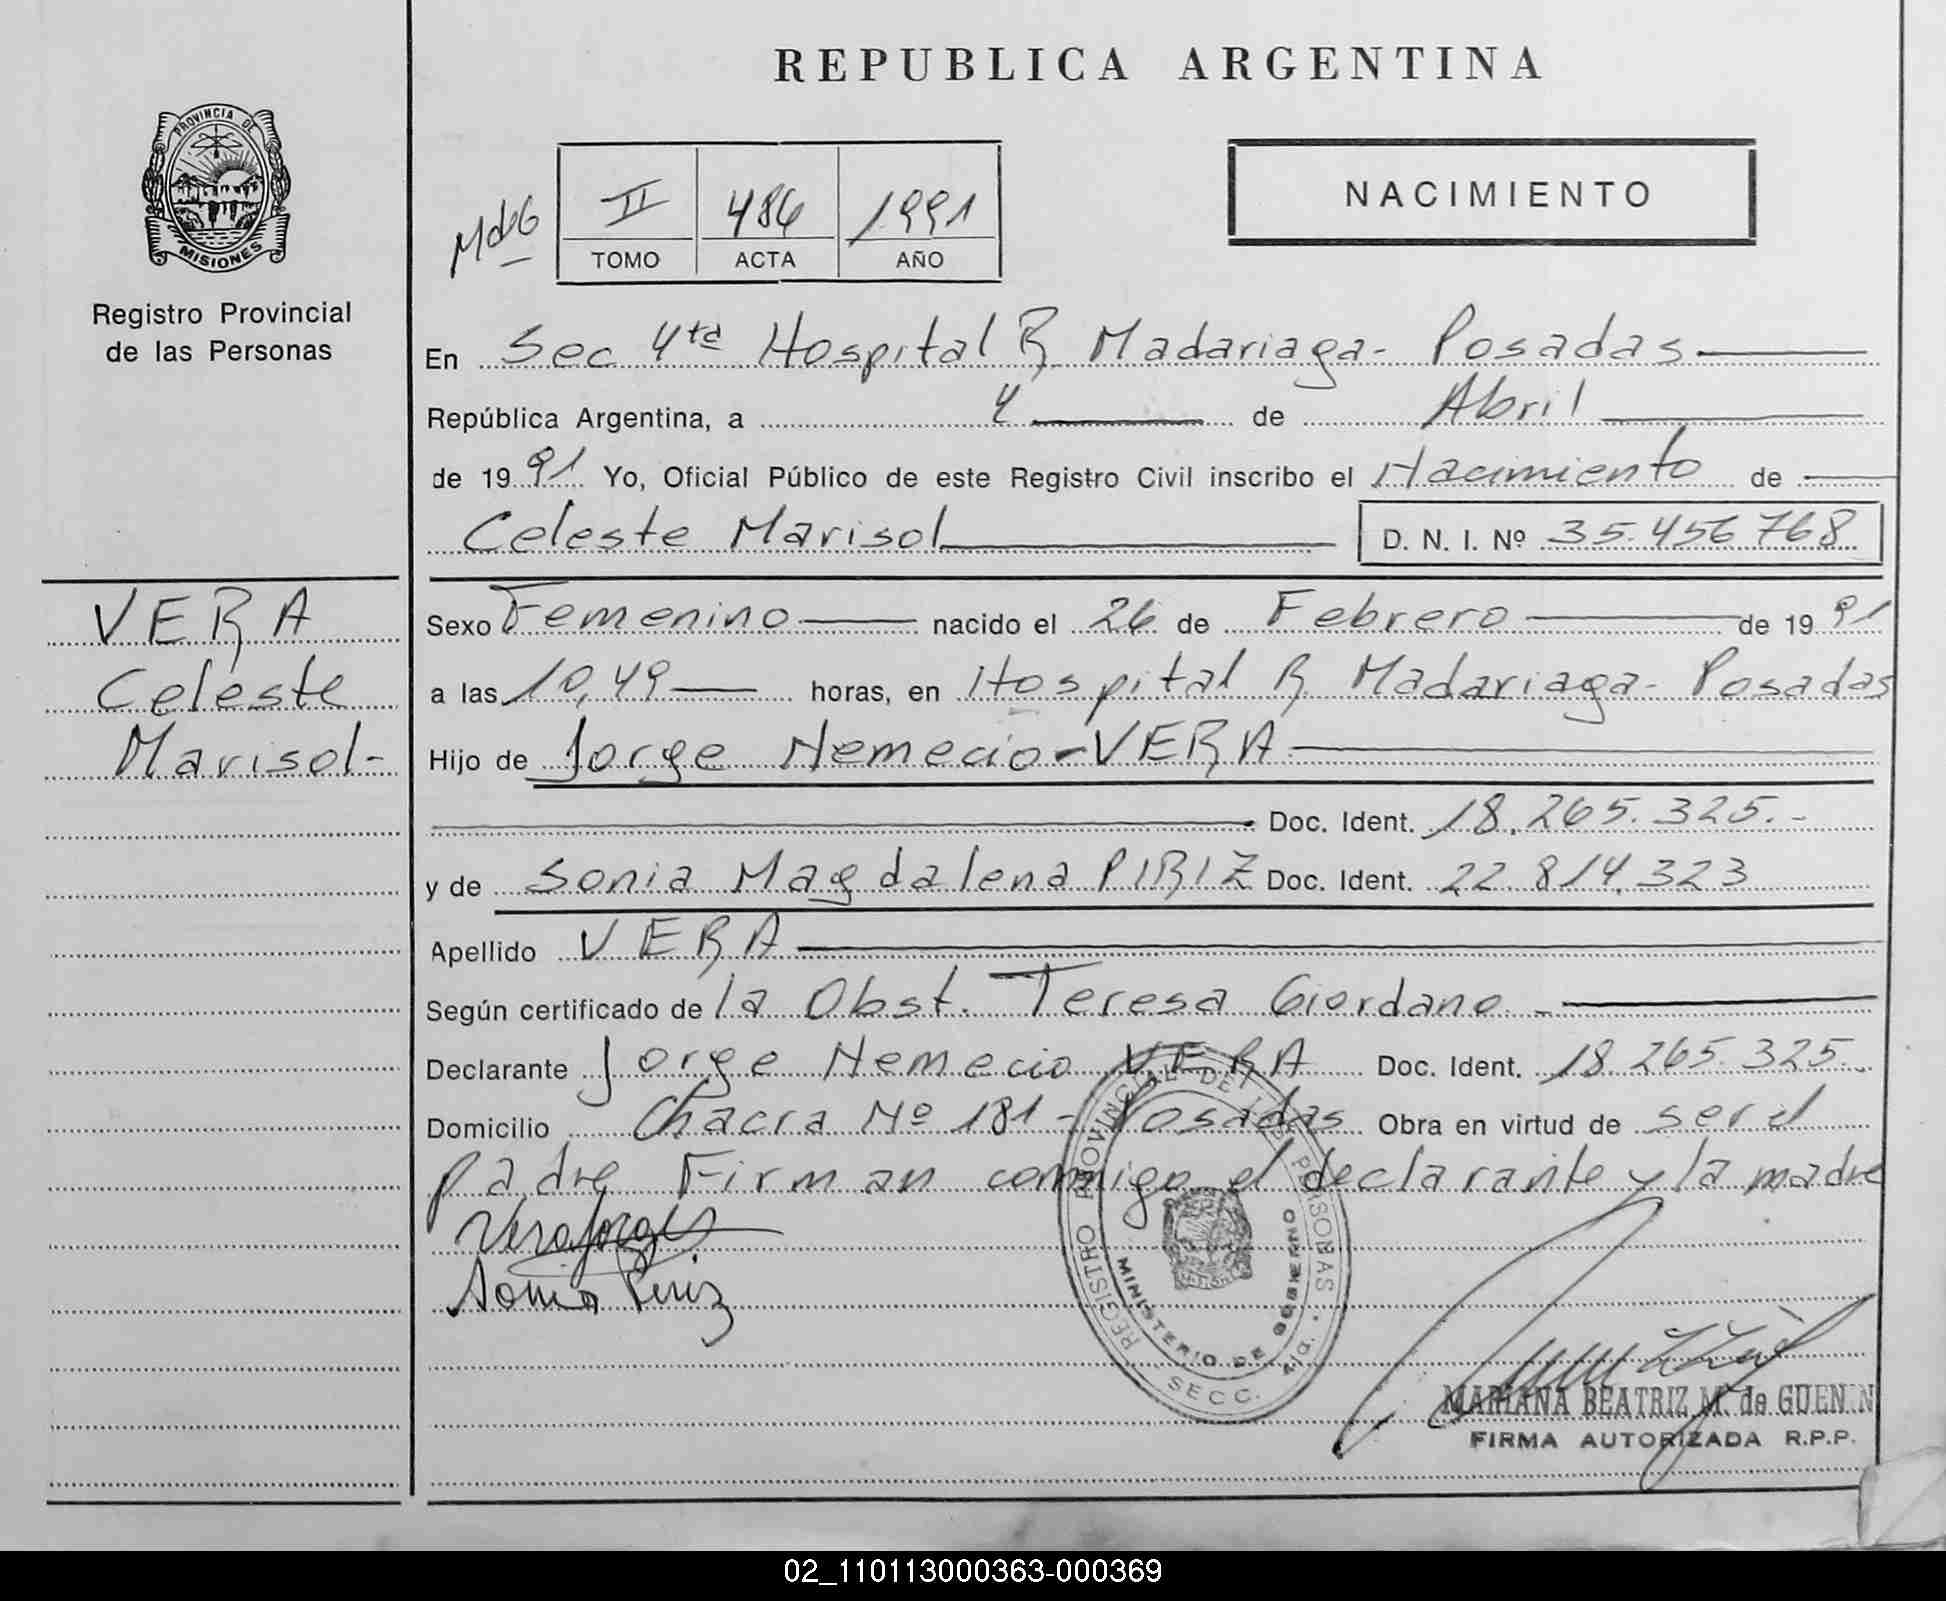 REPUBLICA ARGENTINA
PROVINCIA DE
MISIONES
Registro Provincial
de las Personas
NACIMIENTO
II 486 1991
TOMO ACTA AÑO
En Sec 4ta Hospital R Madariaga - Posadas
República Argentina, a 4 de Abril
de 1991 Yo, Oficial Público de este Registro Civil inscribo el Nacimiento de
Celeste Marisol D. N. I. Nº 35.456768
VERA
Celeste
Marisol-
Sexo Femenino nacido el 26 de Febrero de 1991
a las 10,49 horas, en Hospital R Madariaga - Posadas
Hijo de Jorge Nemecio - VERA
Doc. Ident. 18.265.325.-
y de Sonia Magdalena PIRIZ Doc. Ident. 22.814.323
Apellido VERA
Según certificado de la Obst. Teresa Giordano -
Declarante Jorge Nemecio VERA Doc. Ident. 18.265.325.
Domicilio Chacra Nº 181 - Posadas Obra en virtud de ser el
padre Firman conmigo el declarante y la madre
Vera Jorge
Sonia Piriz
REGISTRO PROVINCIAL DE LAS PERSONAS
MINISTERIO DE GOBIERNO
SECC. 4ta.
MARIANA BEATRIZ M. de GUENIN
FIRMA AUTORIZADA R.P.P.
02_110113000363-000369